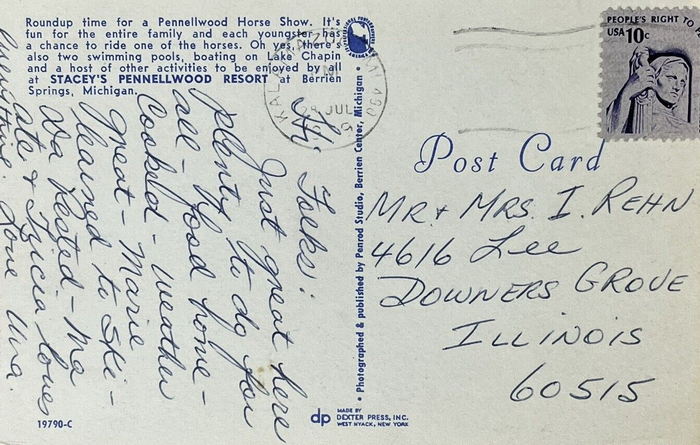 Roundup time for a Pennellwood Horse Show. It's
fun for the entire family and each youngster has
a chance to ride one of the horses. Oh yes, there's
also two swimming pools, boating on Lake Chapin
and a host of other activities to be enjoyed by all
at STACEY'S PENNELLWOOD RESORT at Berrien
Springs, Michigan.
Hi Folks!
Just great here
plenty to do for
all - food home -
cooked - weather
great - Marie
learned to ski -
Da Rested - Ma
ate & Tricia loves
everything. Love
Una
19790-C
• Photographed & published by Penrod Studio, Berrien Center, Michigan •
dp MADE BY
DEXTER PRESS, INC.
WEST NYACK, NEW YORK
KALAMAZOO
28 JUL
PEOPLE'S RIGHT TO
USA 10c
Post Card
MR. + MRS. I. REHN
4616 Lee
DOWNERS GROVE
ILLINOIS
60515